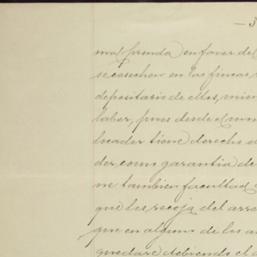 — 3
mal prenda en favor del
se cosechen en las fincas
depositario de ellos, mien
haber, pues desde el mom
hacedor tiene derecho a
der como garantia de
ne tambien facultad
que los recoja del arre
que en alguno de los a
quedare debiendo el a